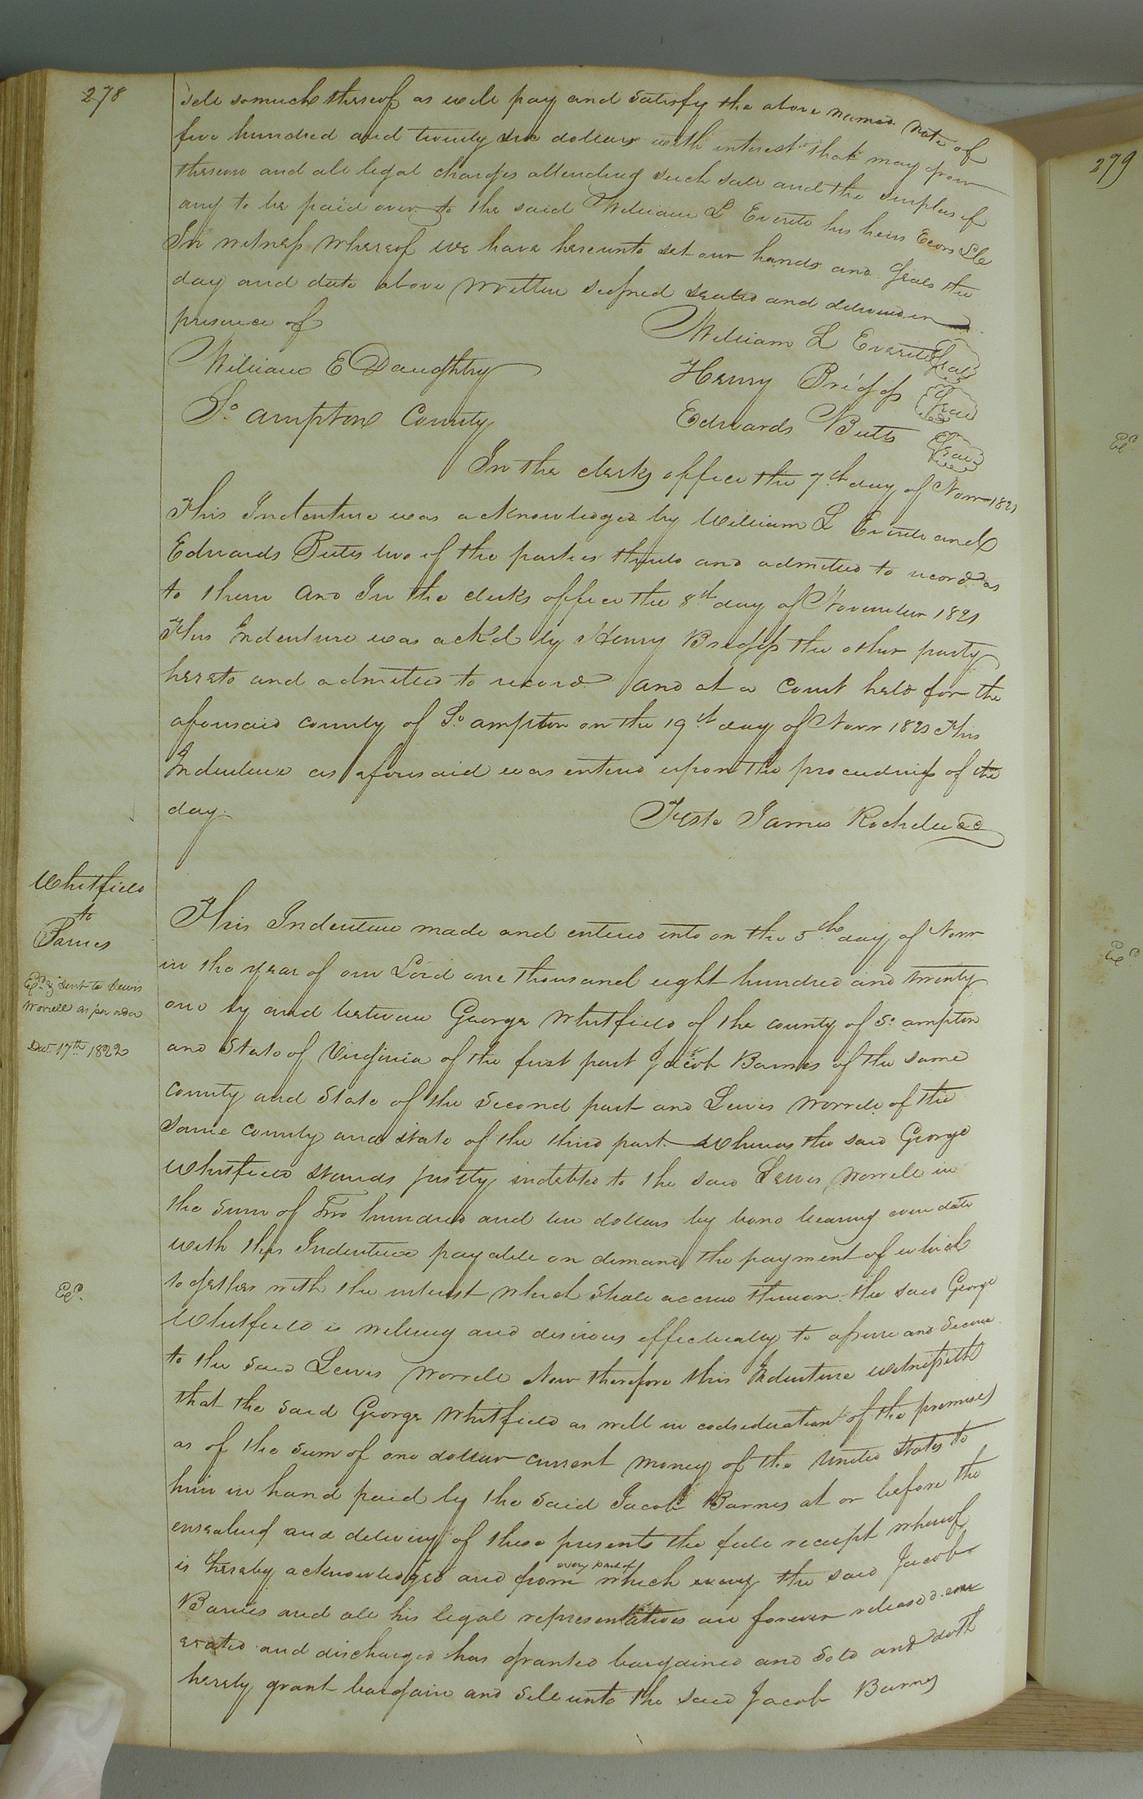 278
sell somuch thereof as will pay and satisfy the above named note of
five hundred and twenty six dollars with interest that may grow
thereon and all legal charges attending such sale and the surplus if
any to be paid over to the said William L Everitt his heirs Exors &c
In witness whereof we have hereunto set our hands and seals the
day and date above written signed sealed and delivered in
presence of
William L Everitt Seal
William E Daughtry
Henry Briggs Seal
So ampton County
Edwards Butts Seal
In the clerks office the 7th day of Novr 1821
This Indenture was acknowledged by William L Everitt and
Edwards Butts two of the parties thereto and admitted to record as
to them and In the clerks office the 8th day of November 1821
This Indenture was ackd by Henry Briggs the other party
hereto and admitted to record and at a Court held for the
aforesaid county of So ampton on the 19th day of Novr 1821 This
Indenture as aforesaid was entered upon the proceedings of the
day.
Teste James Rochelle CC
Whitfield
to
Barnes
sent to Lewis
Worrell as per order
Decr 17th 1822
This Indenture made and entered into on the 5th day of Novr
in the year of our Lord one thousand eight hundred and twenty
one by and between George Whitfield of the county of So ampton
and State of Virginia of the first part Jacob Barnes of the same
county and State of the Second part and Lewis Worrell of the
same county and state of the third part Whereas the said George
Whitfield stands justly indebted to the said Lewis Worrell in
the sum of Two hundred and ten dollars by bond bearing even date
with this Indenture payable on demand the payment of which
together with the interest which shall accrue thereon the said George
Whitfield is willing and desirous effectually to assure and secure
to the said Lewis Worrell Now therefore this Indenture witnesseth
that the said George Whitfield as well in codsideration of the premises
as of the sum of one dollar current money of the United States to
him in hand paid by the said Jacob Barnes at or before the
ensealing and delivery of these presents the full receipt whereof
is hereby acknowledged and from every part of which every the said Jacob
Barnes and all his legal representatives are forever released exon
erated and discharged has granted bargained and sold and doth
hereby grant bargain and sell unto the said Jacob Barnes
279